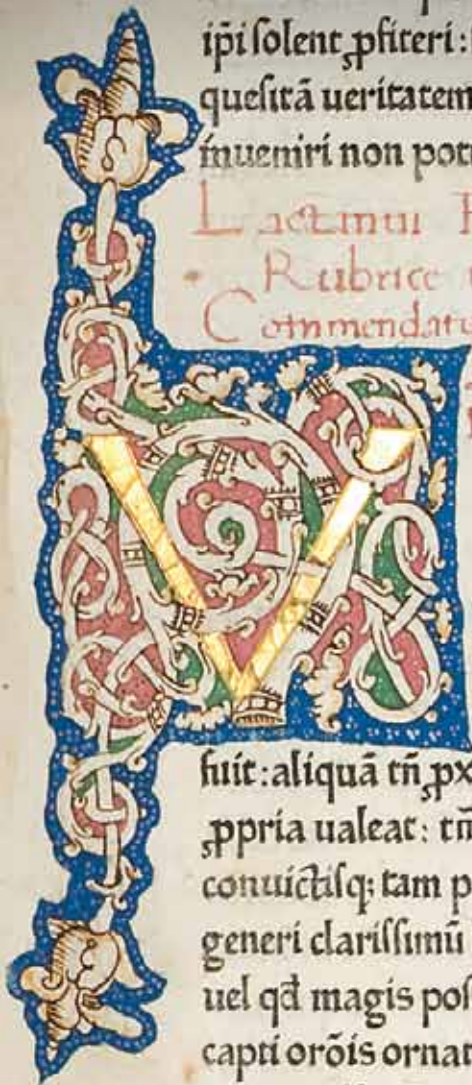 ip̄i solent ꝓfiteri:
quesitā ueritatem
inueniri non
Rubrice
V
fuit: aliquā tn̄ ꝓx
ꝓpria ualeat: tn̄
conuictisq; tam p
generi clarissimū
uel qđ magis pos
capti orōis ornat